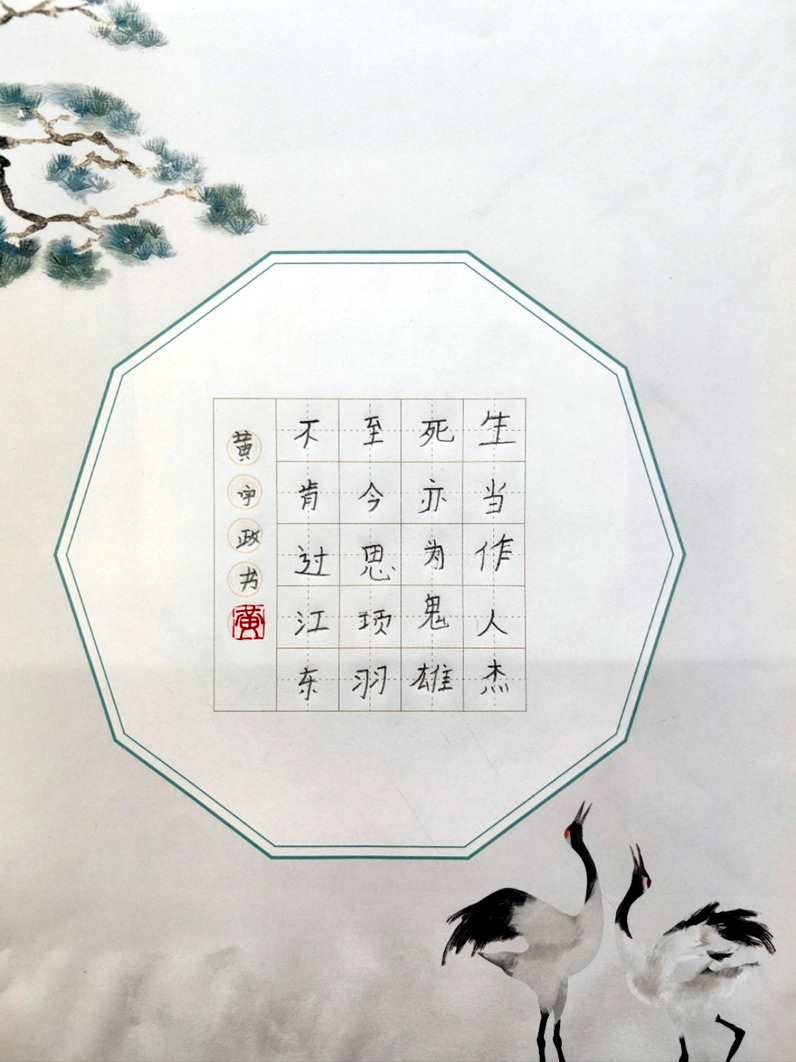 生当作人杰
死亦为鬼雄
至今思项羽
不肯过江东
黄宇政书
黄